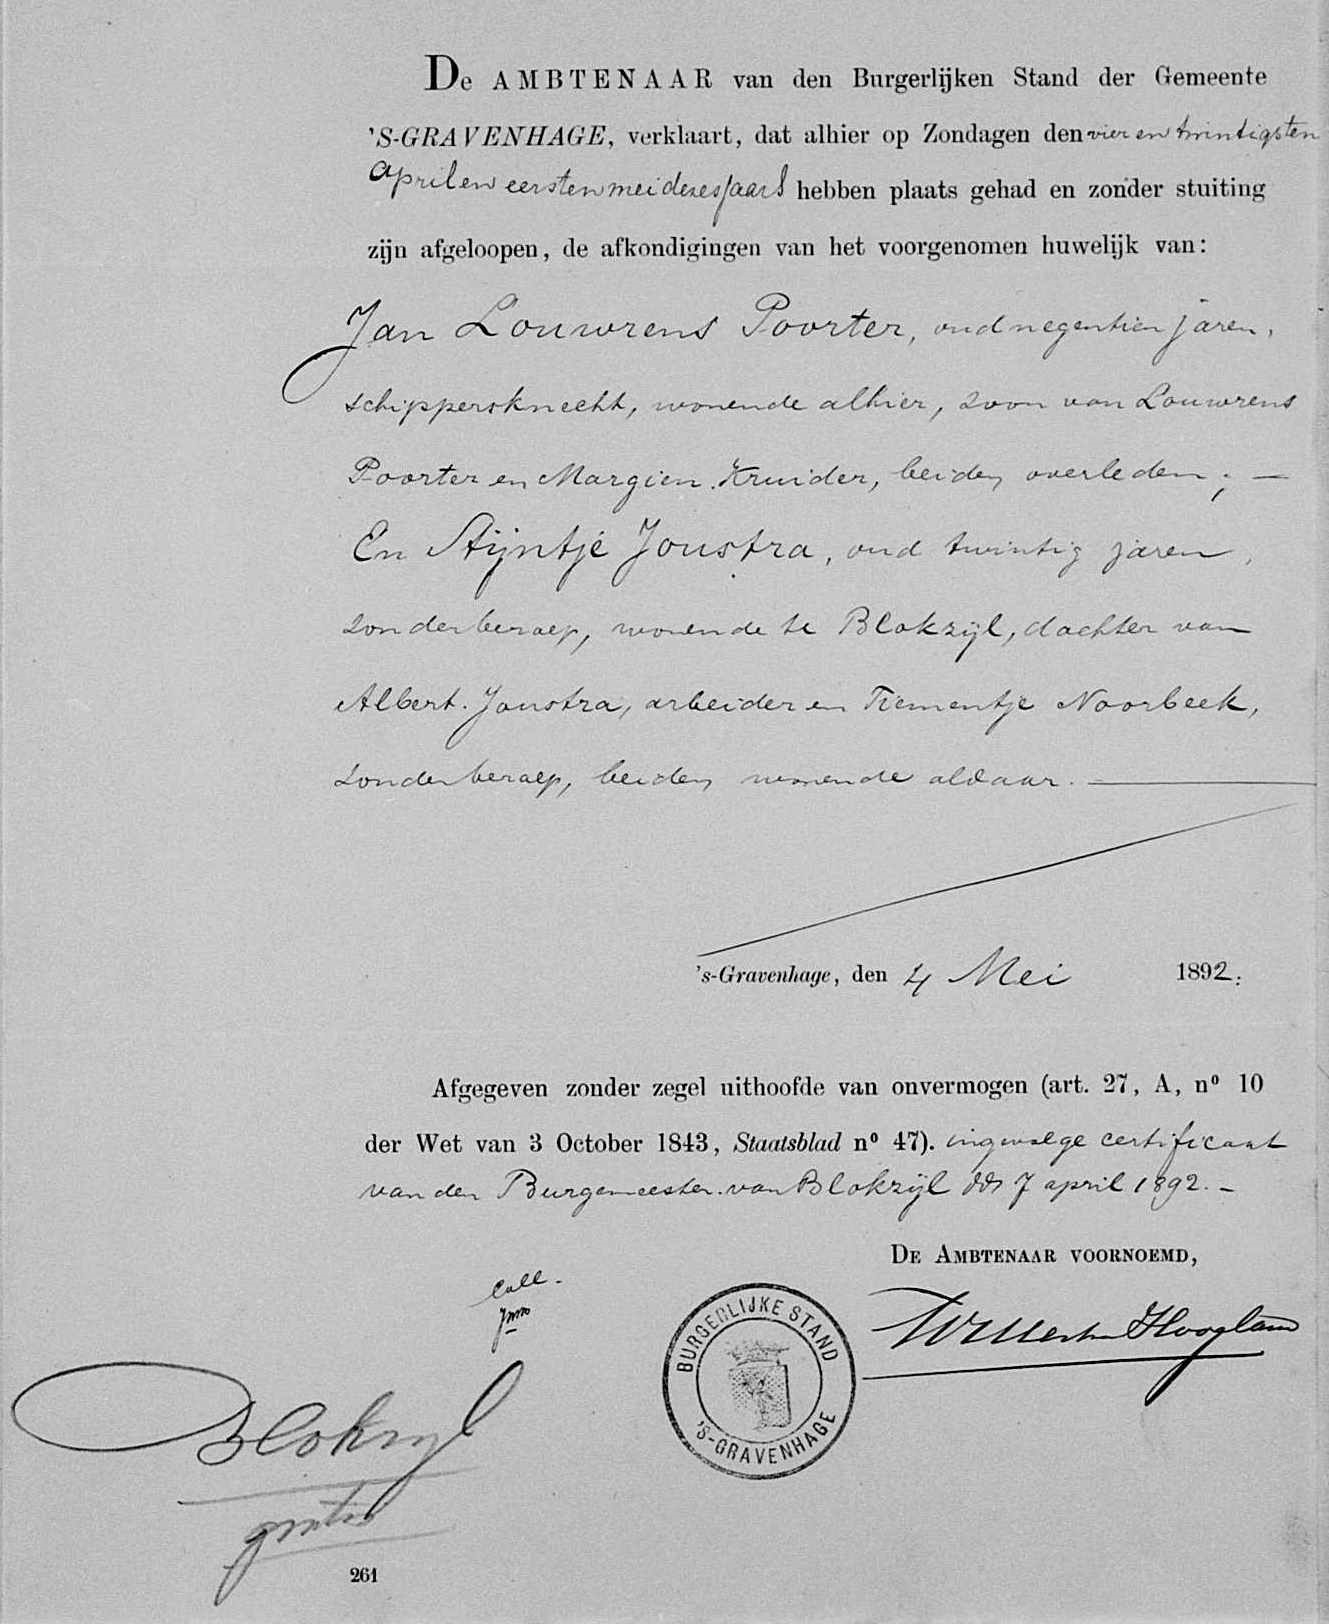 De AMBTENAAR van den Burgerlijken Stand der Gemeente
'S-GRAVENHAGE, verklaart, dat alhier op Zondagen den vier en twintigsten
April en eersten mei dezes jaars hebben plaats gehad en zonder stuiting
zijn afgeloopen, de afkondigingen van het voorgenomen huwelijk van:
Jan Louwrens Poorter, oud negentien jaren,
schippersknecht, wonende alhier, zoon van Louwrens
Poorter en Margien Kruider, beiden overleden; —
En Stijntje Joustra, oud twintig jaren,
zonder beroep, wonende te Blokzijl, dochter van
Albert Joustra, arbeider en Tiementje Noorbeek,
zonder beroep, beiden wonende aldaar.
's-Gravenhage, den 4 Mei 1892.
Afgegeven zonder zegel uithoofde van onvermogen (art. 27, A, nº 10
der Wet van 3 October 1843, Staatsblad nº 47). ingevolge certificaat
van den Burgemeester van Blokzijl dd 7 april 1892. –
DE AMBTENAAR VOORNOEMD,
Coll.
BURGERLIJKE STAND
'S-GRAVENHAGE
Blokzyl
gratis
261